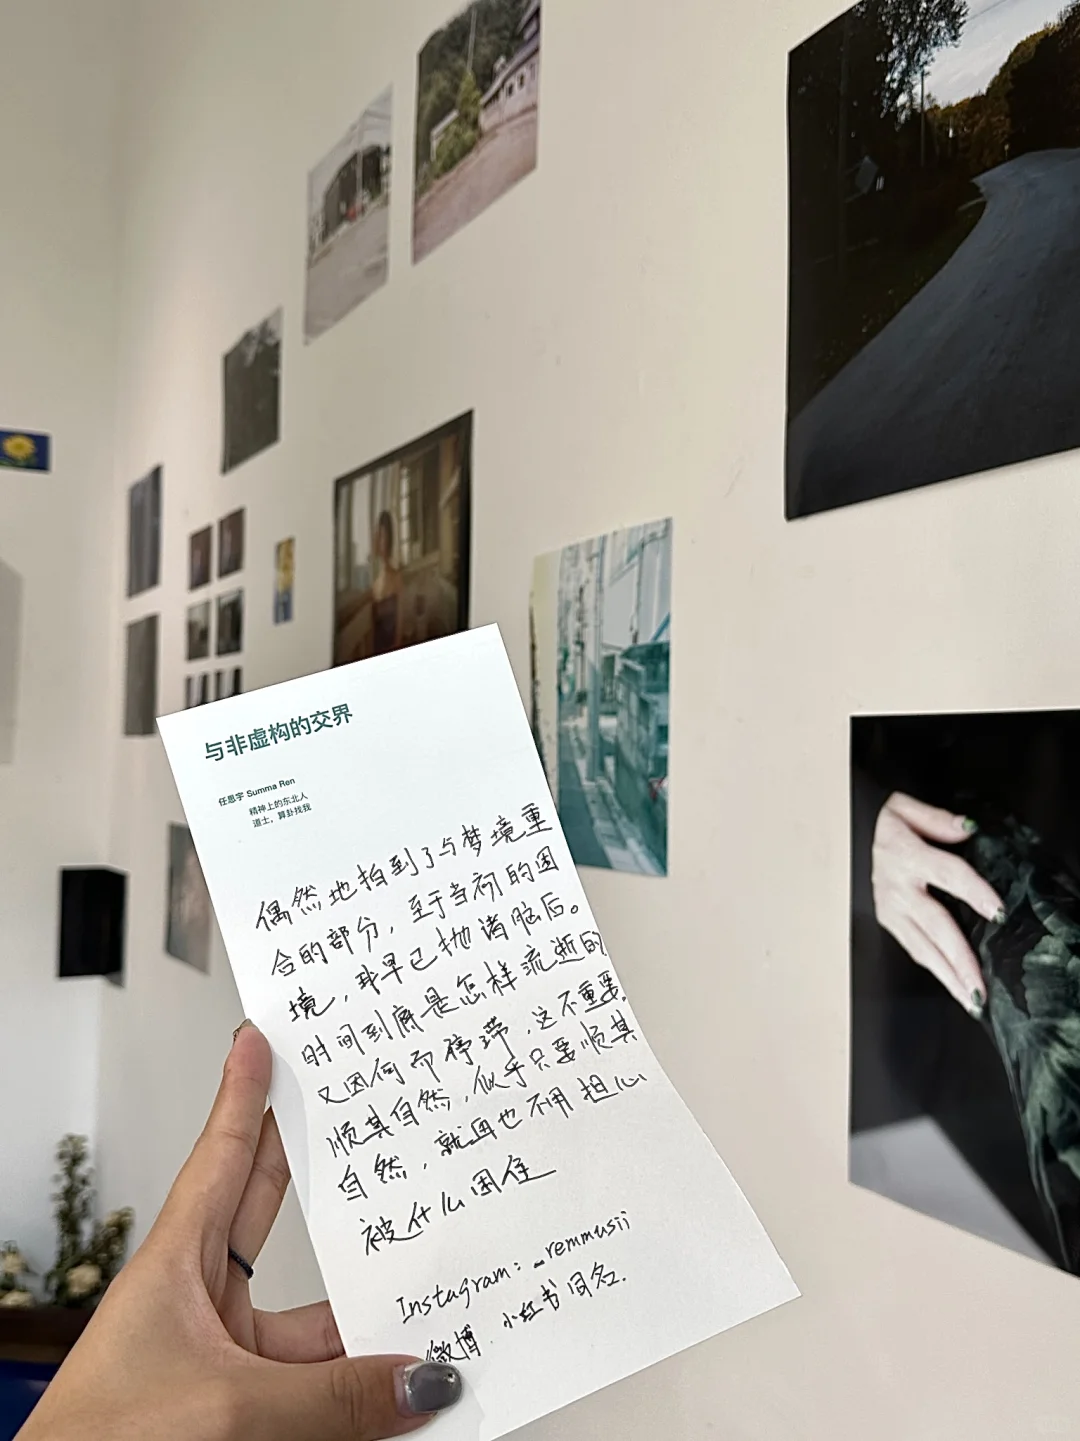 与非虚构的交界
任思宇 Summa Ren
精神上的东北人
道士，算卦找我
偶然地拍到了与梦境重
合的部分，至于当初的困
境，我早已抛诸脑后。
时间到底是怎样流逝的
又因何而停滞，这不重要。
顺其自然，似乎只要顺其
自然，就再也不用担心
被什么困住
Instagram: _remmusii
微博．小红书同名．